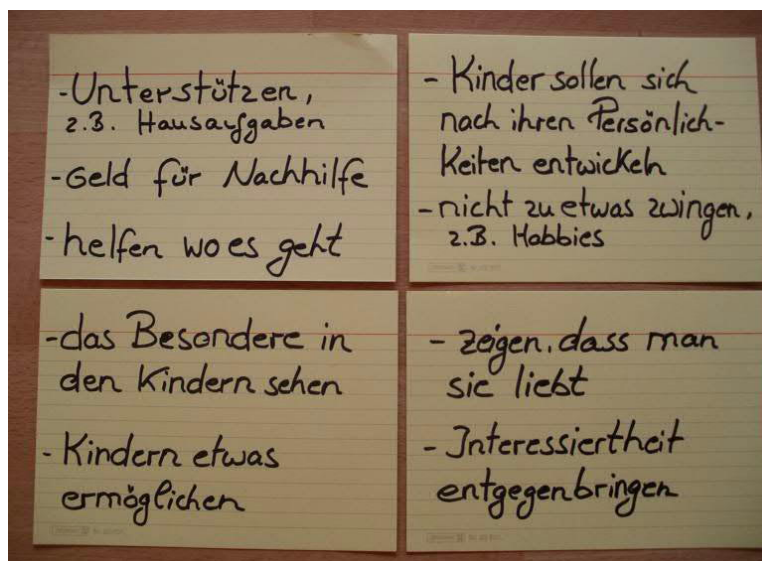 - Unterstützen,
z.B. Hausaufgaben
- Geld für Nachhilfe
- helfen wo es geht
- Kinder sollen sich
nach ihren Persönlich-
keiten entwickeln
- nicht zu etwas zwingen,
z.B. Hobbies
- das Besondere in
den Kindern sehen
- Kindern etwas
ermöglichen
- zeigen, dass man
sie liebt
- Interessiertheit
entgegenbringen